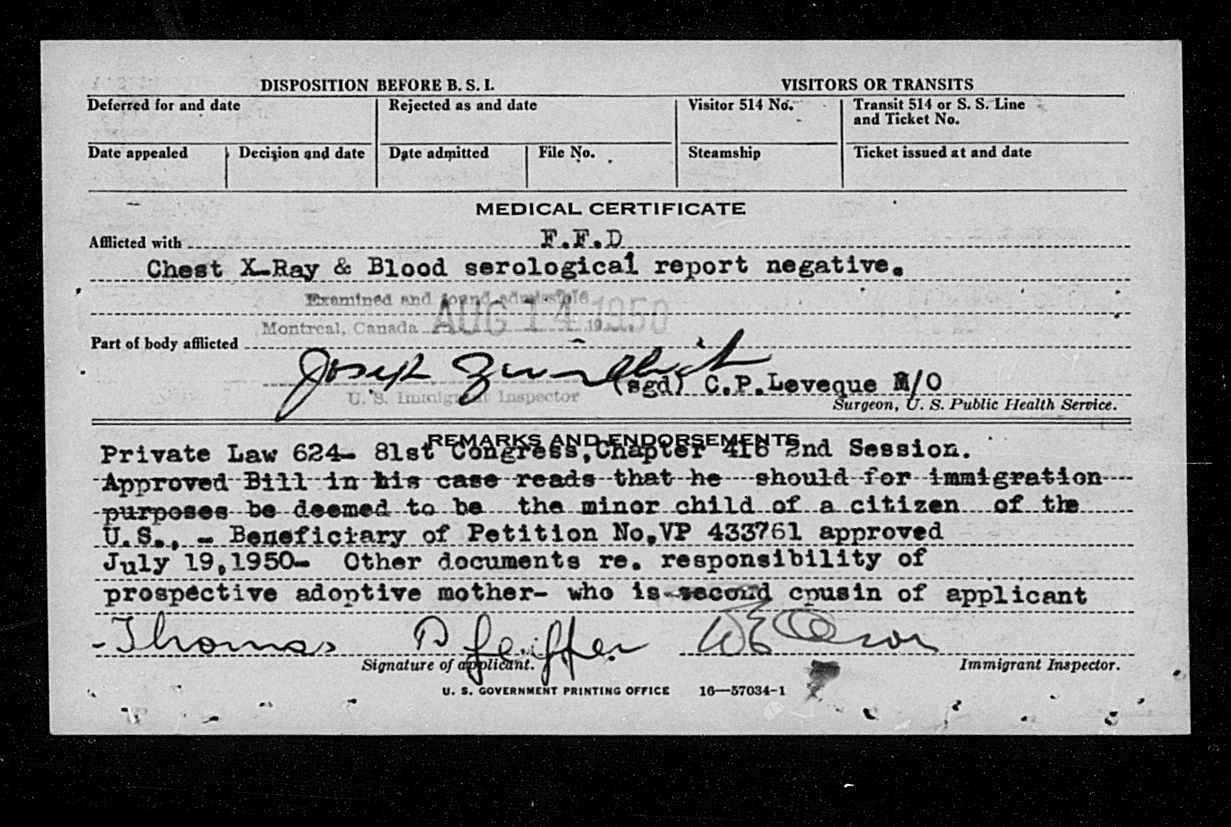 DISPOSITION BEFORE B. S. I. VISITORS OR TRANSITS
Deferred for and date Rejected as and date Visitor 514 No. Transit 514 or S. S. Line and Ticket No.
Date appealed Decision and date Date admitted File No. Steamship Ticket issued at and date
MEDICAL CERTIFICATE
Afflicted with F.F.D
Chest X-Ray & Blood serological report negative.
Examined and found admissible
Montreal, Canada AUG 14 1950 19
Part of body afflicted
Joseph (sgd) C.P.Leveque M/O
U. S. Immigrant Inspector Surgeon, U. S. Public Health Service.
REMARKS AND ENDORSEMENTS
Private Law 624- 81st Congress,Chapter 416 2nd Session.
Approved Bill in his case reads that he should for immigration
purposes be deemed to be the minor child of a citizen of the
U.S., - Beneficiary of Petition No.VP 433761 approved
July 19,1950- Other documents re. responsibility of
prospective adoptive mother- who is second cousin of applicant
Thomas Pfeiffer
Signature of applicant. Immigrant Inspector.
U. S. GOVERNMENT PRINTING OFFICE 16—57034-1